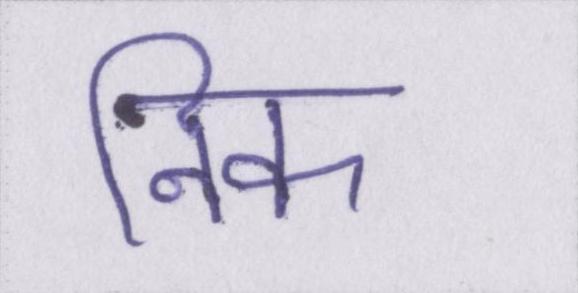 निक